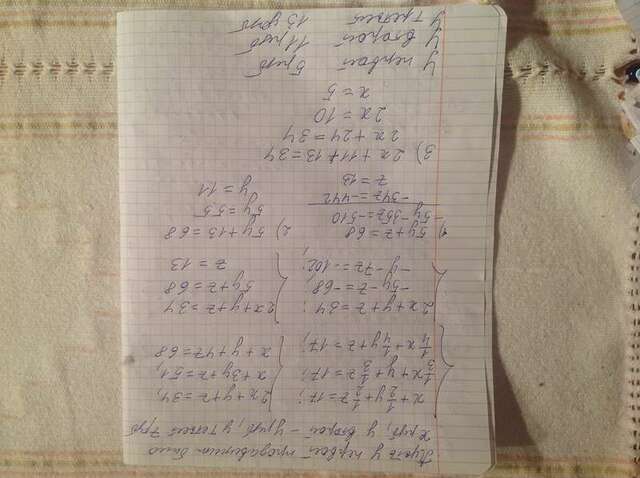 Пусть у первой продавщицы было
x руб, у второй - y руб, у третьей z руб
x + 1/2 y + 1/2 z = 17;
1/3 x + y + 1/3 z = 17;
1/4 x + 1/4 y + z = 17;
2x + y + z = 34,
x + 3y + z = 51,
x + y + 4z = 68
2x + y + z = 34;
-5y - z = -68,
-y - 7z = -102;
2x + y + z = 34
5y + z = 68
z = 13
1) 5y + z = 68
-5y - 35z = -510
-34z = -442
z = 13
2) 5y + 13 = 68
5y = 55
y = 11
3) 2x + 11 + 13 = 34
2x + 24 = 34
2x = 10
x = 5
У первой 5 руб
У второй 11 руб
У третьей 13 руб